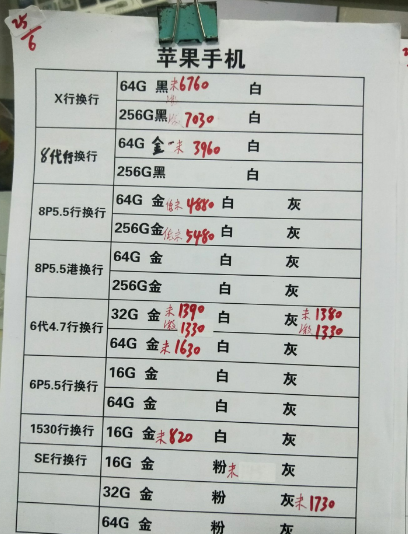 25/6
苹果手机
X行换行 64G 黑未6760 白
256G黑激7030 白
8代行换行 64G 金未3960 白
256G黑 白
8P5.5行换行 64G 金低未4880 白 灰
256G金低未5480 白 灰
8P5.5港换行 64G 金 白 灰
256G金 白 灰
6代4.7行换行 32G 金未1390 白 灰未1380
激1330 激1330
64G 金未1630 白 灰
6P5.5行换行 16G 金 白 灰
64G 金 白 灰
1530行换行 16G 金未820 白 灰
SE行换行 16G 金 粉未 灰
32G 金 粉 灰未1730
64G 金 粉 灰